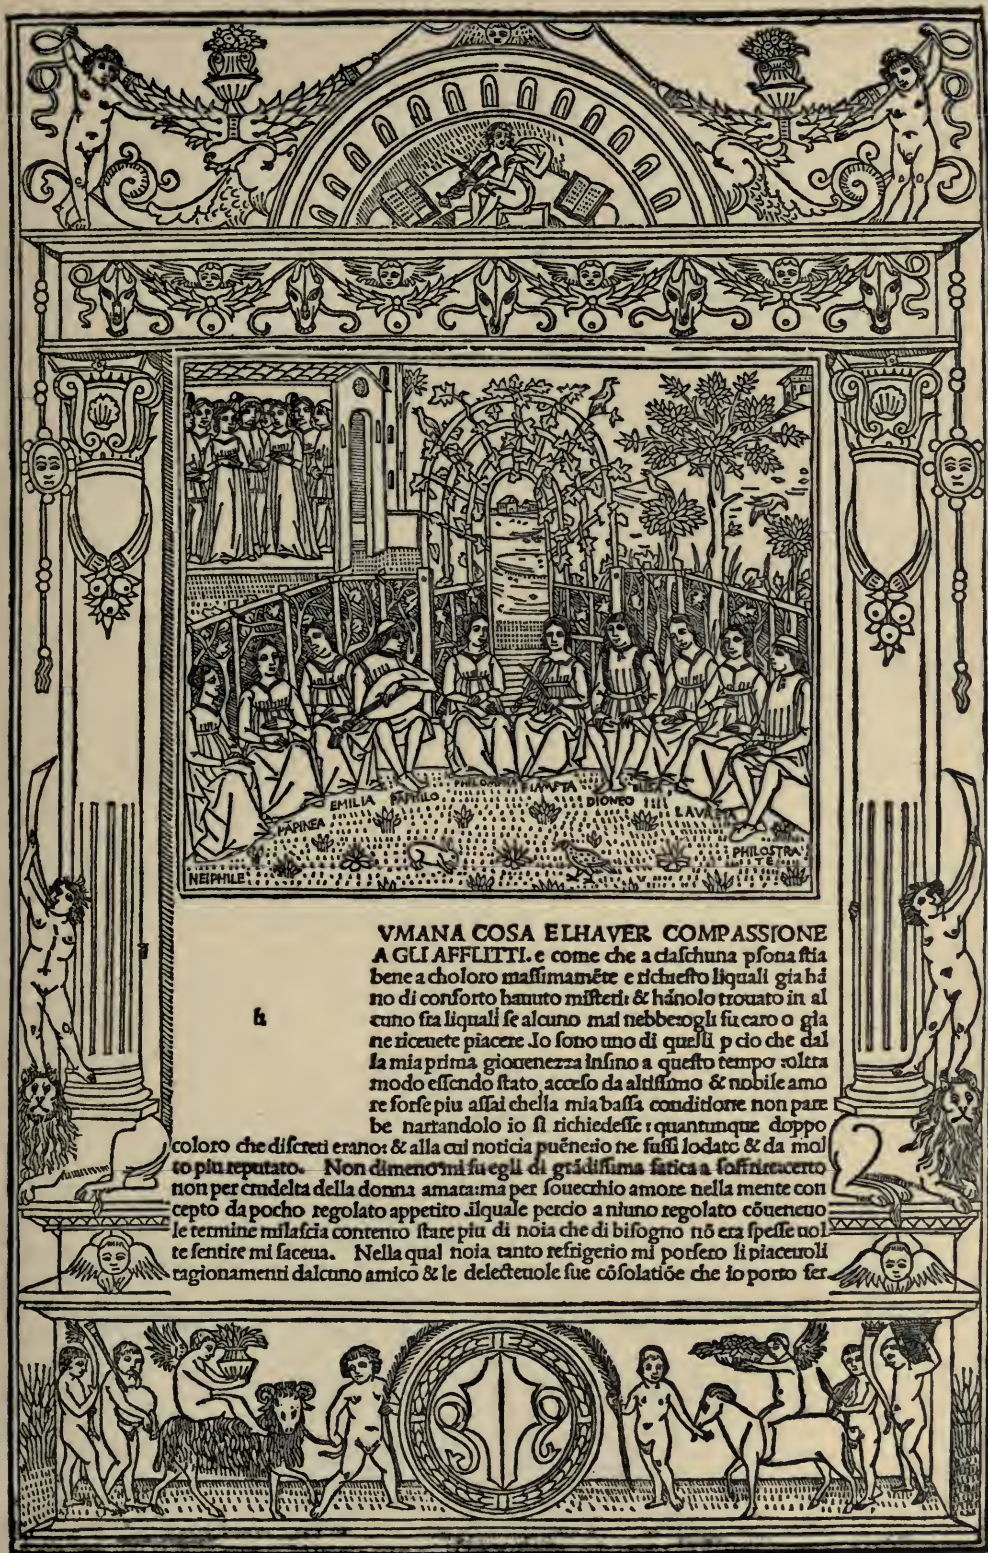 PHILOMENA FIAMETA ELISA
EMILIA PAPHILO DIONEO LAVRE
PAPINEA
PHILOSTRA
TE
NEIPHILE
VMANA COSA ELHAVER COMPASSIONE
A GLI AFFLITTI. e come che a ciaſchuna pſona ſtia
bene a choloro maſſimamēte e richieſto liquali gia há
no di conforto hauuto miſterii & hánolo trouato in al
cuno fra liquali ſe alcuno mai nebbe:ogli fu caro o gia
ne riceuete piacere .Io ſono uno di quelli p cio che dal
la mia prima giouenezza inſino a queſto tempo :oltra
modo eſſendo ſtato acceſo da altiſſimo & nobile amo
re forſe piu aſſai chella mia baſſa conditione non pare
be narrandolo io ſi richiedeſſe : quantunque doppo
coloro che diſcreti erano: & alla cui noticia puēnerio ne fuſſi lodato & da mol
to piu reputato. Non dimeno mi fu egli di grādiſſima fatica a ſoffrire:certo
non per crudelta della donna amata:ma per ſouecchio amore nella mente con
cepto da pocho regolato appetito .ilquale percio a niuno regolato cōueneuo
le termine milaſcia contento ſtare piu di noia che di biſogno nō era ſpeſſe uol
te ſentire mi faceua. Nella qual noia tanto refrigerio mi porſero li piaceuoli
ragionamenti dalcuno amico & le delecteuole ſue cōſolatiōe che io porto fer
h